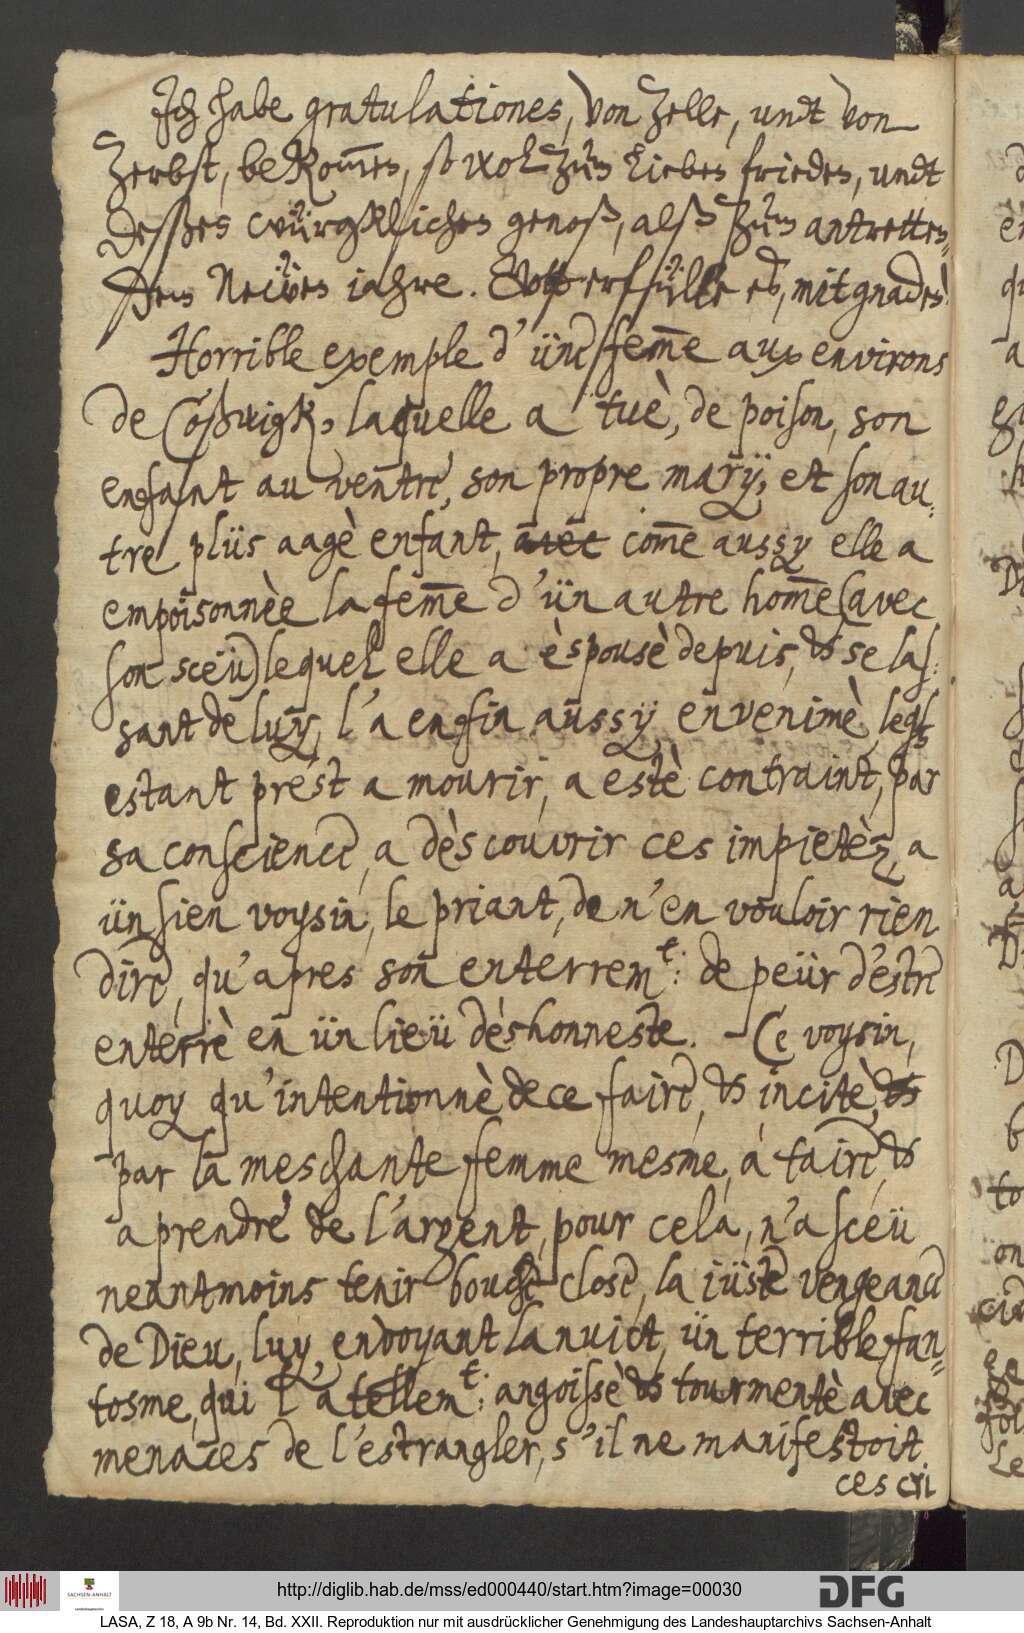 Ich habe gratulationes, von Zelle, undt von
Zerbst, bekom̅en, so wol zum lieben frieden, undt
deßen würgklichen genoß, alß zum antretten-
den Neẅen iahre. Gott erfülle es, mit gnaden!
Horrible exemple d'ünc fem̅e aux environs
de Coßwigk, laquelle a tuè, de poison, son
enfant au ventre, son propre marÿ, et son au-
tre plüs aagè enfant, avec com̅e aussy elle a
empoisonnèe la fem̅e d'ün autre hom̅e (avec
son sceü) lequel elle a èspousè depuis, & se las-
sant de luy, l'a enfin aussÿ envenimè, leql
estant prest a mourir, a estè contraint, par
sa conscience, a dèscouvrir ces impietèz, a
ün sien voysin, le priant, de n'en vouloir rien
dire, qu'apres son enterrem:t de peür d'estre
enterrè en ün lieü déshonneste. - Ce voysin,
quoy qu'intentionnè de ce faire, & incitè, &
par la meschante femme mesme, a taire, &
a prendre de l'argent, pour cela, n'a sceü
neantmoins tenir bouche close, la iüste vengeance
de Dieu, luy envoyant la nuict, ün terrible fan-
tosme, qui l'a tellem:t angoissè & tourmentè avec
menaces de l'estrangler, s'il ne manifestoit
ces cri
http://diglib.hab.de/mss/ed000440/start.htm?image=00030
SACHSEN-ANHALT
DFG
LASA, Z 18, A 9b Nr. 14, Bd. XXII. Reproduktion nur mit ausdrücklicher Genehmigung des Landeshauptarchivs Sachsen-Anhalt